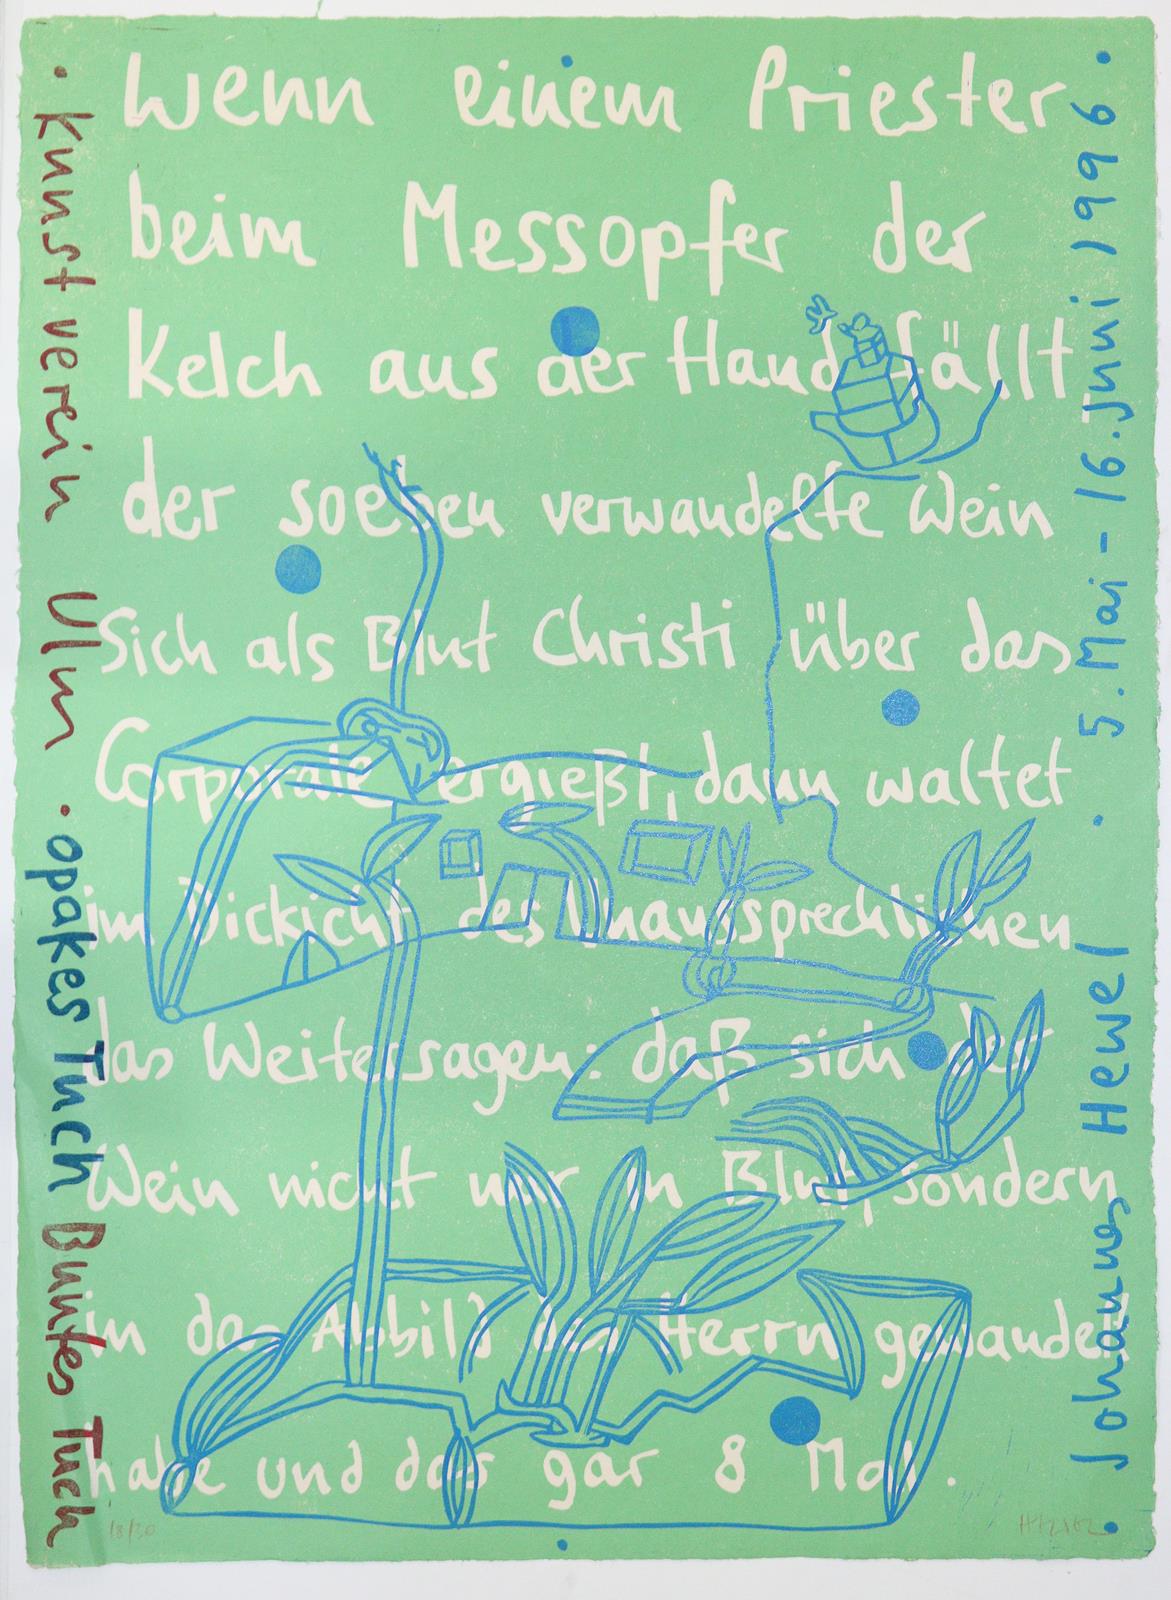 Wenn einem Priester
beim Messopfer der
Kelch aus der Hand fällt
der soeben verwandelte Wein
Sich als Blut Christi über das
Corporale ergießt, dann waltet
im Dickicht des Unaussprechlichen
das Weitersagen: daß sich der
Wein nicht nur in Blut, sondern
in das Abbild des Herrn gewandelt
habe und das gar 8 Mal.
• Kunstverein Ulm • opakes Tuch Buntes Tuch
Johannes Hewel • 5. Mai - 16. Juni 1996 •
18/30